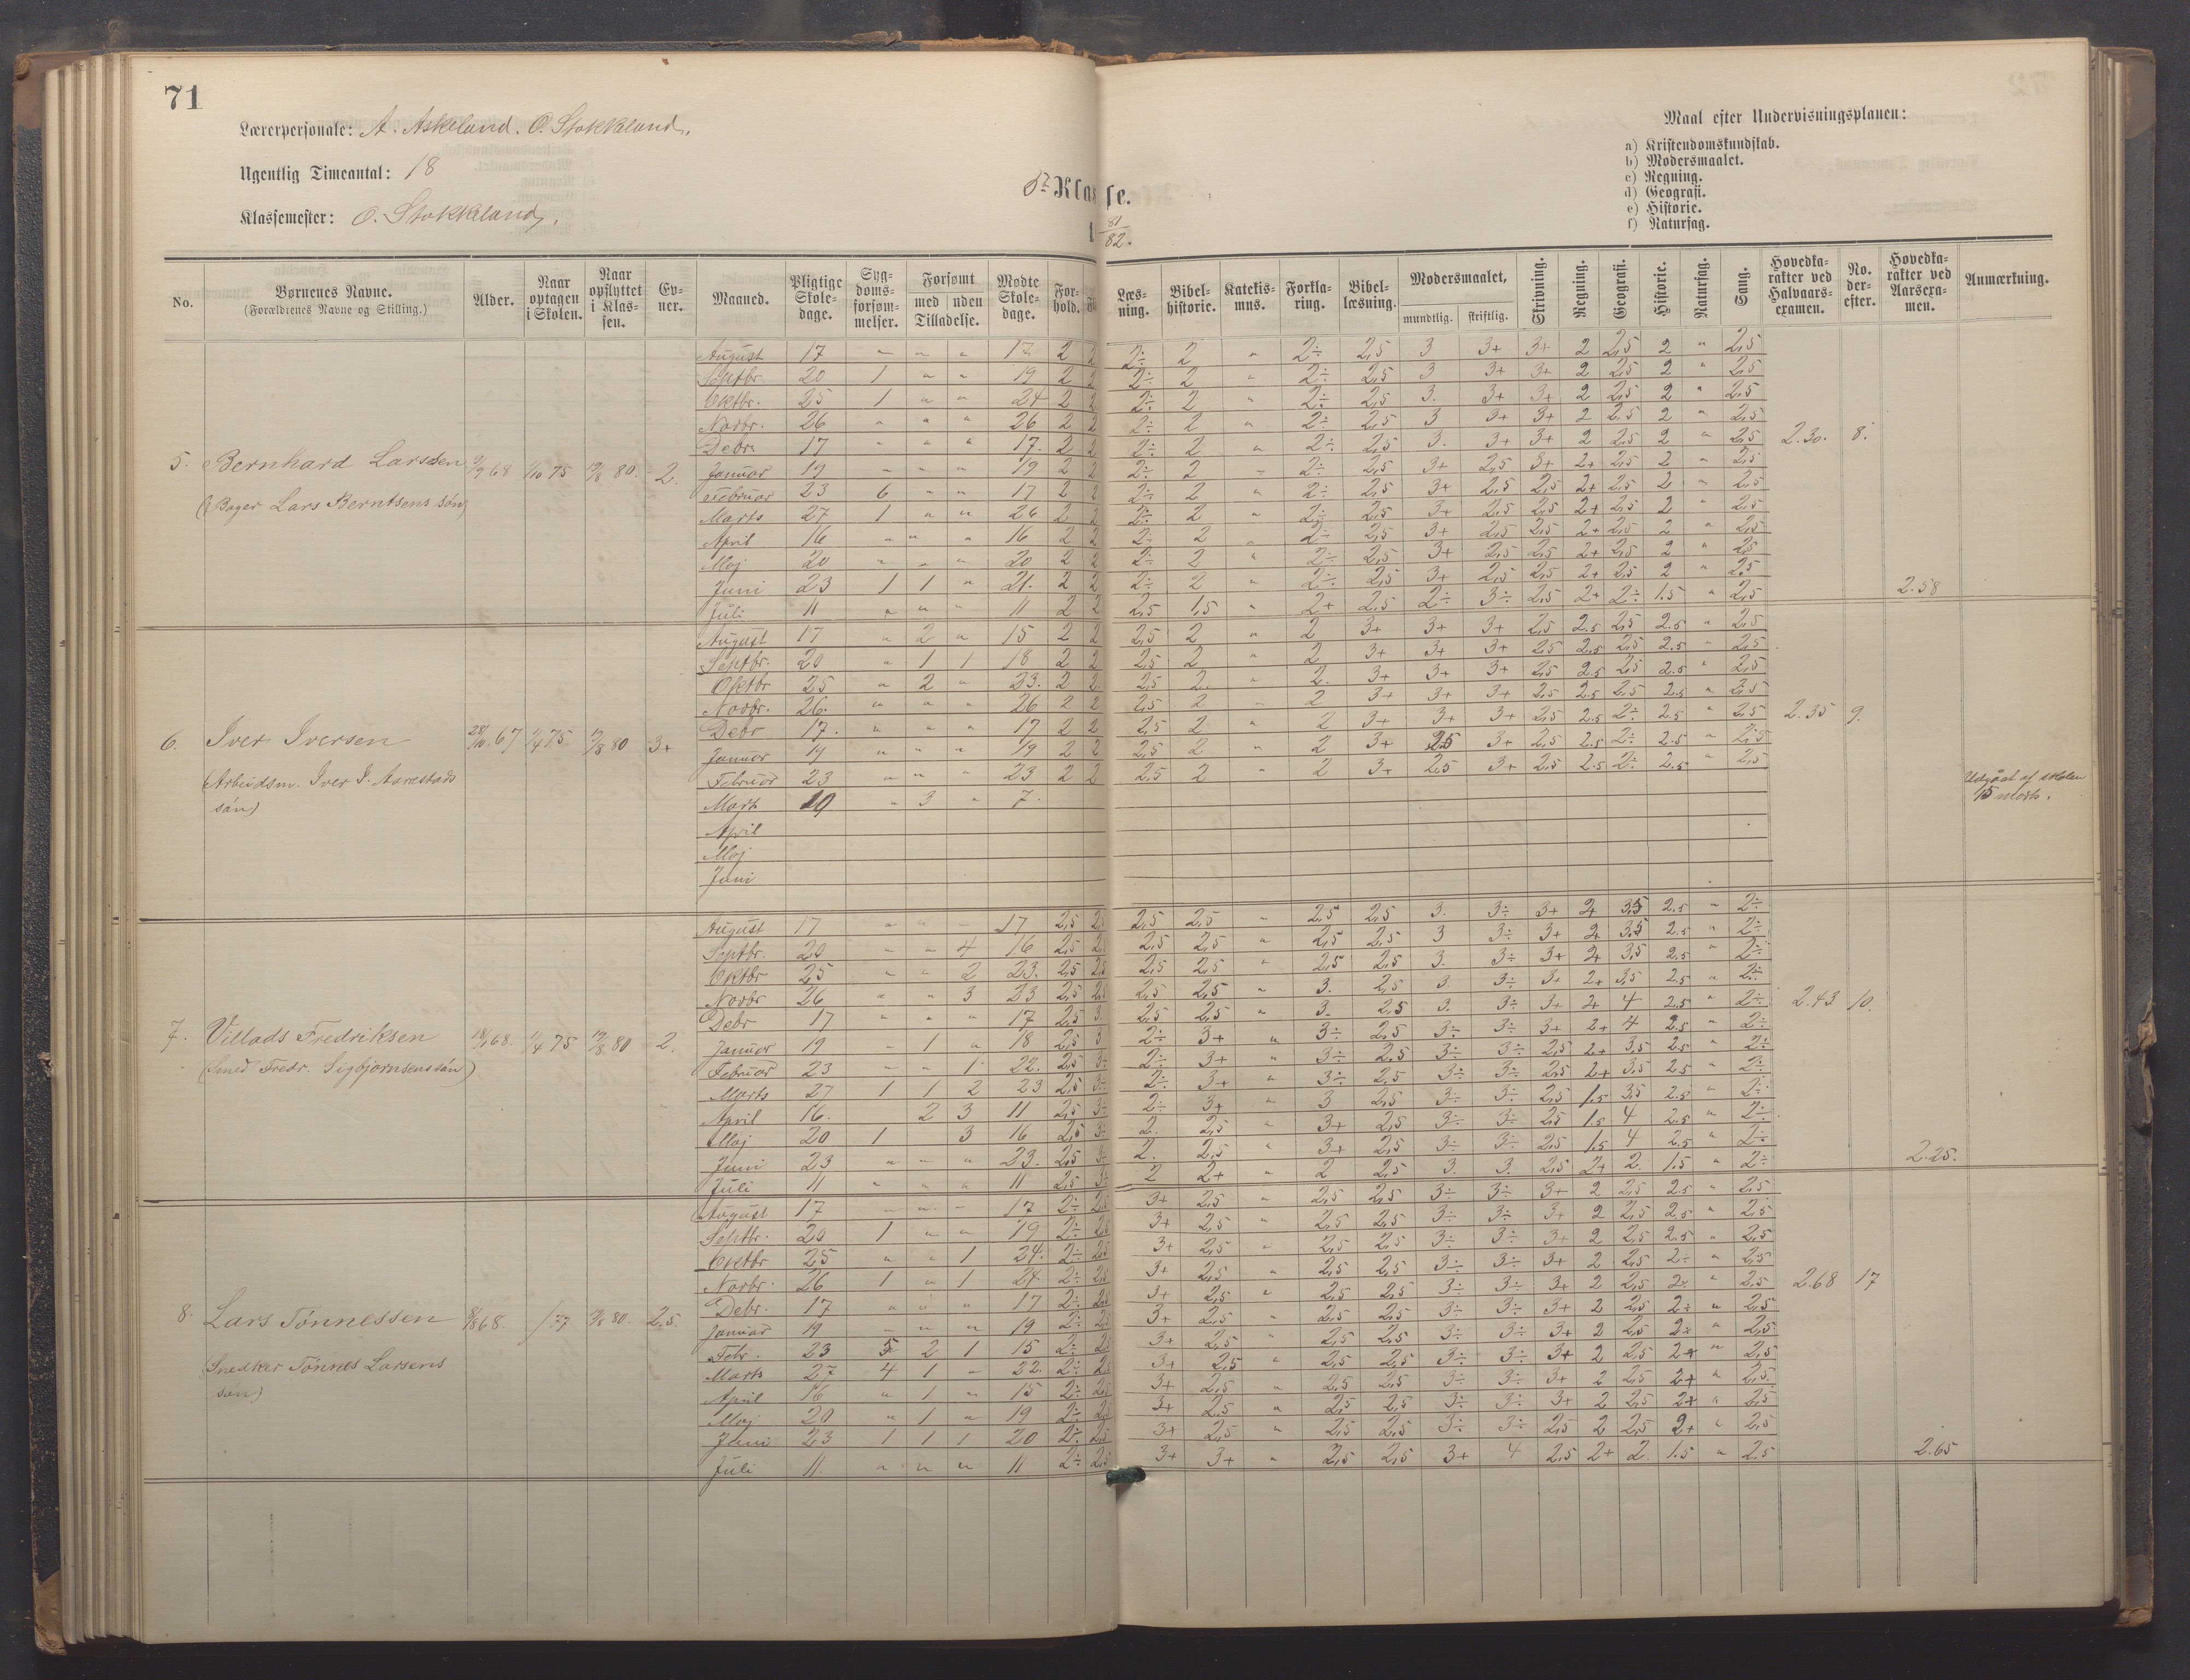 71
Lærerpersonale: A. Askeland. O. Stokkeland.
Ugentlig Timeantal: 18
Klassemester: O. Stokkeland.
Klasse.
81/82.
Maal efter Undervisningsplanen:
a) Kristendomskundskab.
b) Modersmaalet.
c) Regning.
d) Geografi.
e) Historie.
f) Naturfag.
No. Børnenes Navne. (Forældrenes Navne og Stilling.) Alder. Naar optagen i Skolen. Naar opflyttet i Klassen. Evner. Maaned. Pligtige Skoledage. Sygdomsforsømmelser. Forsømt med uden Tilladelse. Mødte Skoledage. Forhold. Læsning. Bibelhistorie. Katekismus. Forklaring. Bibellæsning. Modersmaalet, mundtlig. skriftlig. Skrivning. Regning. Geografi. Historie. Naturfag. Sang. Hovedkarakter ved Halvaarsexamen. No. derefter. Hovedkarakter ved Aarsexamen. Anmærkning.
August 17 " " " 17 2 2 2÷ 2 " 2÷ 2,5 3 3+ 3+ 2 2,5 2 " 2,5
Septbr 20 1 " " 19 2 2 2÷ 2 " 2÷ 2,5 3 3+ 3+ 2 2,5 2 " 2,5
Oktbr. 25 1 " " 24 2 2 2÷ 2 " 2÷ 2,5 3. 3+ 3+ 2 2,5 2 " 2,5
Novbr. 26 " " " 26 2 2 2÷ 2 " 2÷ 2,5 3 3+ 3+ 2 2,5 2 " 2,5
Debr. 17 " " " 17. 2 2 2÷ 2 " 2÷ 2,5 3. 3+ 3+ 2 2,5 2 " 2,5 2.30. 8.
5. Bernhard Larsen 68 1/10 75 80. 2. Januar 19 " " " 19 2 2 2÷ 2 " 2÷ 2,5 3+ 2,5 3+ 2+ 2,5 2 " 2,5
Februar 23 6 " " 17 2 2 2÷ 2 " 2÷ 2,5 3+ 2,5 2,5 2+ 2,5 2 " 2,5
(Bager Lars Berntsens søn) Marts 27 1 " " 26 2 2 2÷ 2 " 2÷ 2,5 3+ 2,5 2,5 2+ 2,5 2 " 2,5
April 16 " " " 16 2 2 2÷ 2 " 2÷ 2,5 3+ 2,5 2,5 2+ 2,5 2 " 2,5
Maj 20 " " " 20 2 2 2÷ 2 " 2÷ 2,5 3+ 2,5 2,5 2+ 2,5 2 " 2,5
Juni 23 1 1 " 21. 2 2 2÷ 2 " 2÷ 2,5 3+ 2,5 2,5 2+ 2,5 2 " 2,5
Juli 11 " " " 11 2 2 2,5 1,5 " 2+ 2,5 2÷ 3÷ 2,5 2+ 2÷ 1.5 " 2,5 2.58
August 17 " 2 " 15 2 2 2,5 2 " 2 3+ 3+ 3+ 2,5 2.5 2,5 2.5 " 2,5
Septbr. 20 " 1 1 18 2 2 2,5 2 " 2 3+ 3+ 3+ 2,5 2.5 2,5 2.5 " 2,5
Oktbr 25 " 2 " 23. 2 2 2,5 2. " 2. 3+ 3+ 3+ 2,5 2.5 2,5 2.5 " 2,5
Novbr. 26. " " " 26 2 2 2,5 2 " 2 3+ 3+ 3+ 2,5 2.5 2,5 2.5 " 2,5
Debr 17. " " " 17 2 2 2,5 2 " 2 3+ 3+ 3+ 2,5 2.5 2÷ 2.5 " 2,5 2.35 9.
6. Iver Iversen 28/10 67 1/4 75 80 3+ Januar 19 " " " 19 2 2 2,5 2 " 2 3+ 2,5 3+ 2,5 2.5 2÷ 2.5 " 2,5
Februar 23 " " " 23 2 2 2,5 2 " 2 3+ 2,5 3+ 2,5 2.5 2÷ 2.5 " 2,5
(Arbeidsm. Iver I. Aarrestads Marts 10 " 3 " 7. Udgået af skolen
søn) 15 marts.
April
Maj
Juni
August 17 " " " 17 2,5 2,5 2,5 2,5 " 2,5 2,5 3. 3÷ 3+ 2+ 3,5 2.5 " 2÷
Septbr. 20 " " 4 16 2,5 2,5 2,5 2,5 " 2,5 2,5 3 3÷ 3+ 2+ 3,5 2.5 " 2÷
Oktbr 25 " " 2 23. 2,5 2,5 2,5 2,5 " 2,5 2,5 3. 3÷ 3+ 2+ 3,5 2.5 " 2÷
Novbr 26 " " 3 23 2,5 2,5 2,5 2,5 " 3. 2,5 3. 3÷ 3+ 2+ 3,5 2.5 " 2÷
Debr 17 " " " 17 2,5 3. 2,5 2,5 " 3. 2,5 3. 3÷ 3+ 2+ 4 2.5 " 2÷ 2.43 10.
7. Villads Fredriksen 68. 1/4 75 80 2. Januar 19 " 1 " 18 2,5 3 2÷ 3+ " 3÷ 2,5 3÷ 3÷ 3+ 2+ 4 2.5 " 2÷
(Smed Fredr. Sigbjørnsens søn) Februar 23 " " 1 22. 2,5 3÷ 2÷ 3+ " 3÷ 2,5 3÷ 3÷ 2,5 2+ 3,5 2.5 " 2÷
Marts 27 1 1 2 23 2,5 3÷ 2÷ 3+ " 3÷ 2,5 3÷ 3÷ 2,5 2+ 3,5 2.5 " 2÷
April 16. 2 3 11 2,5 3÷ 2÷ 3+ " 3 2,5 3÷ 3÷ 2,5 1.5 3,5 2.5 " 2÷
Maj 20 1 3 16 2,5 3÷ 2. 2,5 " 3+ 2,5 3÷ 3÷ 2,5 1.5 4 2.5 " 2÷
Juni 23 " " " 23. 2,5 3÷ 2. 2,5 " 3+ 2,5 3÷ 3÷ 2,5 1.5 4 2.5 " 2÷
Juli 11 " " " 11 2,5 3÷ 2 2+ " 2 2,5 3. 3. 2,5 2+ 2. 1.5 " 2÷ 2.25.
August 17 " " " 17 2÷ 2,5 3+ 2,5 " 2,5 2,5 3÷ 3÷ 3+ 2 2,5 2.5 " 2,5
Septbr. 20 1 " " 19 2÷ 2,5 3+ 2,5 " 2,5 2,5 3÷ 3÷ 3+ 2 2,5 2.5 " 2,5
Oktbr 25 " " 1 24. 2÷ 2,5 3+ 2,5 " 2,5 2,5 3÷ 3÷ 3+ 2 2,5 2.5 " 2,5
Novbr. 26 1 " 1 24 2÷ 2,5 3+ 2,5 " 2,5 2,5 3÷ 3÷ 3+ 2 2,5 2÷ " 2,5
Debr. 17 " " " 17 2÷ 2,5 3+ 2,5 " 2,5 2,5 3÷ 3÷ 3+ 2 2,5 2÷ " 2,5 2.68 17
8. Lars Tönnessen 68. 77 80. 2,5. Januar 19 " " " 19 2÷ 2,5 3+ 2,5 " 2,5 2,5 3÷ 3÷ 3+ 2 2,5 2÷ " 2,5
Febr. 23 5 2 1 15 2÷ 2,5 3+ 2,5 " 2,5 2,5 3÷ 3÷ 3+ 2 2,5 2÷ " 2,5
(Snedker Tönnes Larsens Marts 27 4 1 " 22. 2÷ 2,5 3+ 2,5 " 2,5 2,5 3÷ 3÷ 3+ 2 2,5 2+ " 2,5
søn) April 16 " 1 " 15 2÷ 2,5 3+ 2,5 " 2,5 2,5 3÷ 3÷ 3+ 2 2,5 2+ " 2,5
Maj 20 " 1 " 19 2÷ 2,5 3+ 2,5 " 2,5 2,5 3÷ 3÷ 3+ 2 2,5 2+ " 2,5
Juni 23 1 1 1 20 2÷ 2,5 3+ 2,5 " 2,5 2,5 3÷ 3÷ 2,5 2 2,5 2+ " 2,5
Juli 11. " " " 11 2÷ 2,5 3+ 3+ " 2,5 2,5 3+ 4 2,5 2+ 2. 1.5 " 2.5 2.65